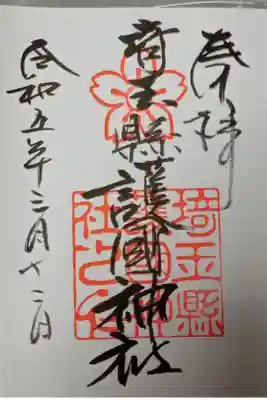 奉拝
埼玉縣護國神社
埼玉縣護國神社之印
令和五年三月十二日